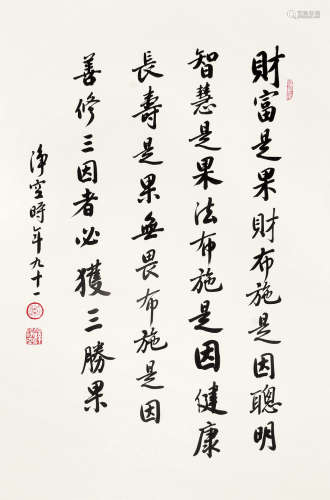 財富是果財布施是因聰明
智慧是果法布施是因健康
長壽是果無畏布施是因
善修三因者必獲三勝果
淨空時年九十一